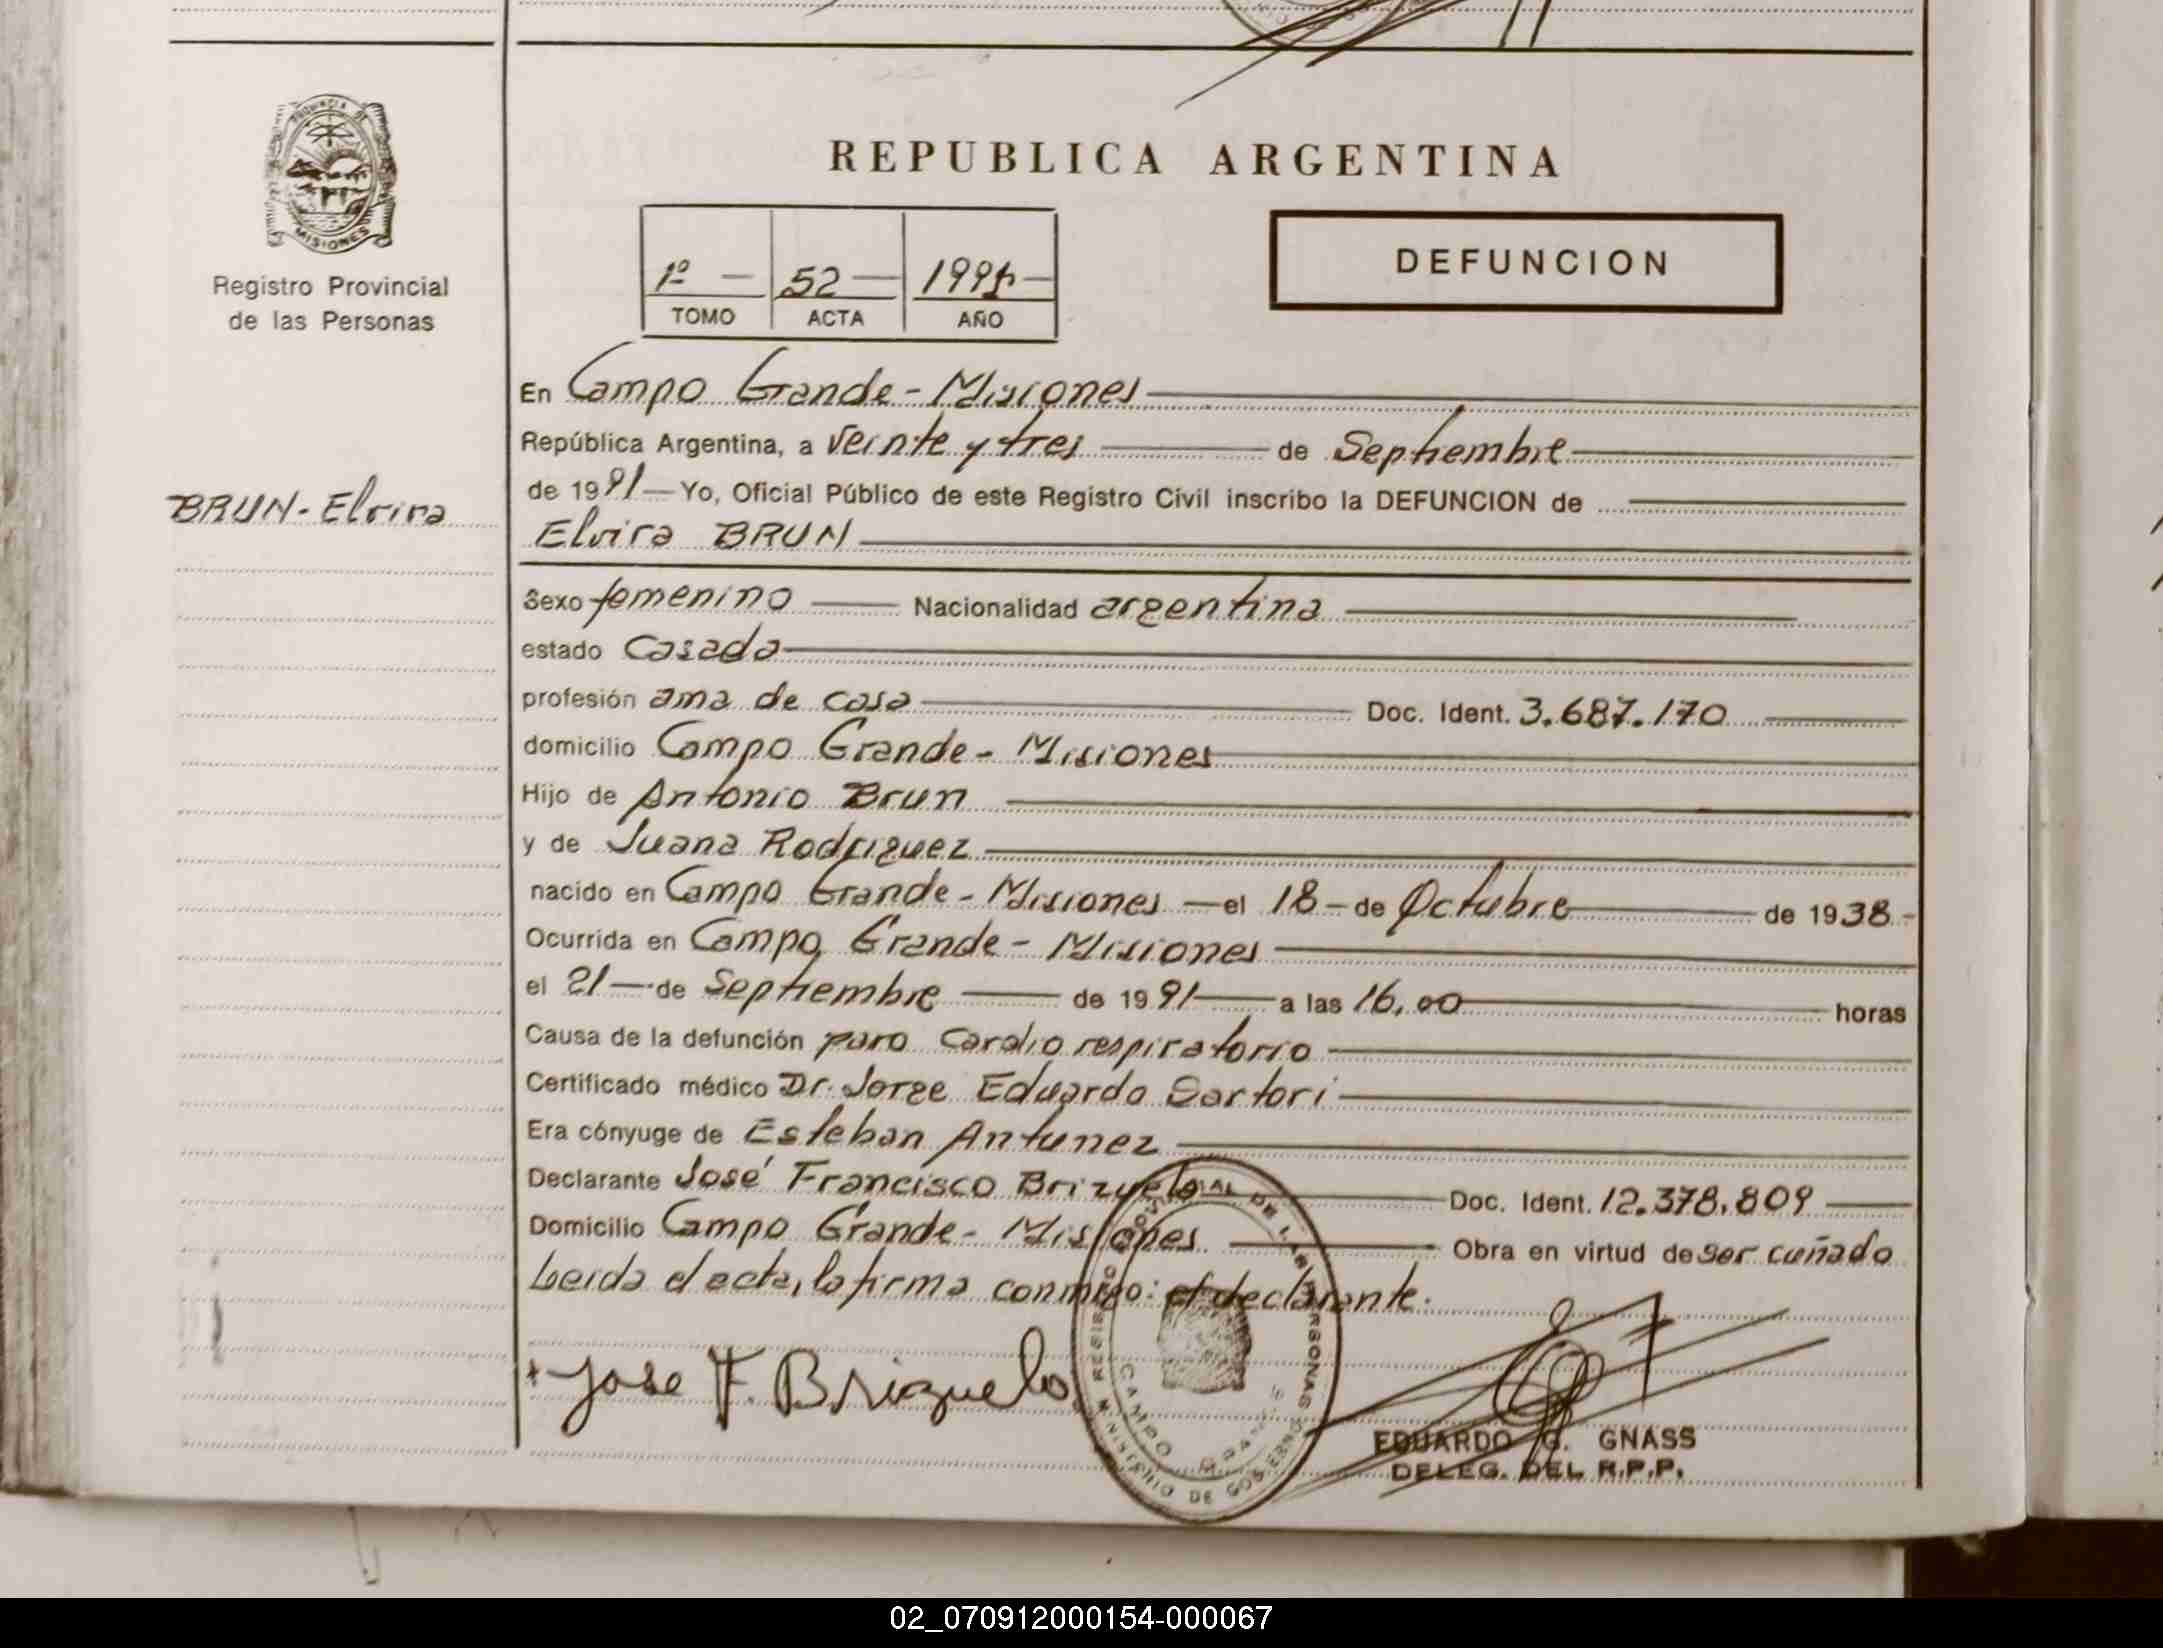 REPUBLICA ARGENTINA
PROVINCIA DE
MISIONES
Registro Provincial
de las Personas
1º — 52 — 1991 —
TOMO ACTA AÑO
DEFUNCION
En Campo Grande - Misiones
República Argentina, a veinte y tres de Septiembre
de 1991 — Yo, Oficial Público de este Registro Civil inscribo la DEFUNCION de
BRUN - Elvira
Elvira BRUN
Sexo femenino Nacionalidad argentina
estado Casada
profesión ama de casa Doc. Ident. 3.687.170
domicilio Campo Grande - Misiones
Hijo de Antonio Brun
y de Juana Rodriguez
nacido en Campo Grande - Misiones — el 18 — de Octubre de 1938.-
Ocurrida en Campo Grande - Misiones
el 21 — de Septiembre de 1991 a las 16,00 horas
Causa de la defunción paro Cardio respiratorio
Certificado médico Dr. Jorge Eduardo Sartori
Era cónyuge de Esteban Antunez
Declarante José Francisco Brizuela Doc. Ident. 12.378.809
Domicilio Campo Grande - Misiones Obra en virtud de ser cuñado
Leida el acta, la firma conmigo: el declarante.
+ Jose F. Brizuela
REGISTRO PROVINCIAL DE LAS PERSONAS
MINISTERIO DE GOBIERNO
CAMPO GRANDE
EDUARDO G. GNASS
DELEG. DEL R.P.P.
02_070912000154-000067